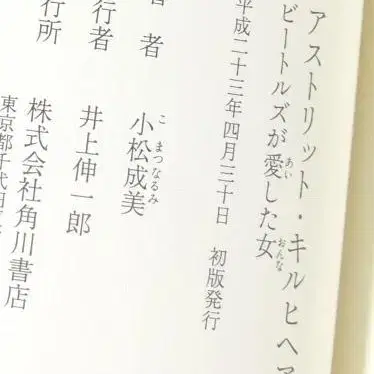 アストリット・キルヒヘア
ビートルズが愛した女
平成二十三年四月三十日 初版発行
著者 小松成美
発行者 井上伸一郎
発行所 株式会社角川書店
東京都千代田